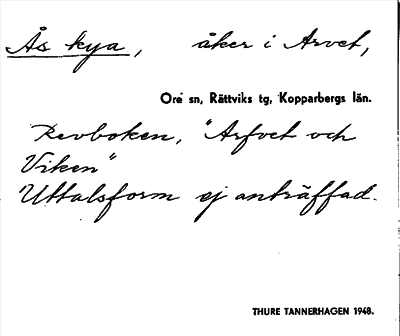 Ås kya, åker i Arvet,
Ore sn, Rättviks tg, Kopparbergs län.
Revboken, "Arfvet och
Viken"
Uttalsform ej anträffad.
THURE TANNERHAGEN 1948.